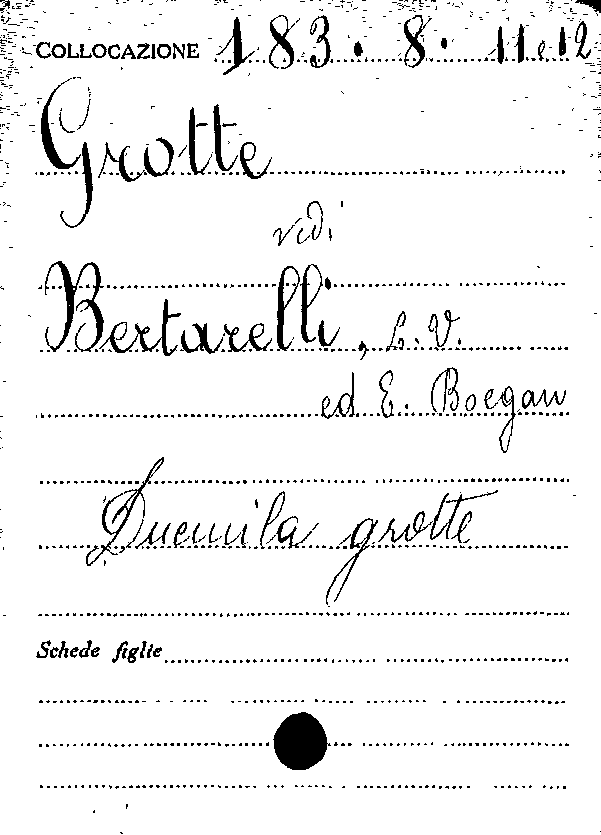 COLLOCAZIONE 183.8.11 e 12
Grotte
vedi
Bertarelli, L.V.
ed E. Boegan
Duemila grotte
Schede figlie